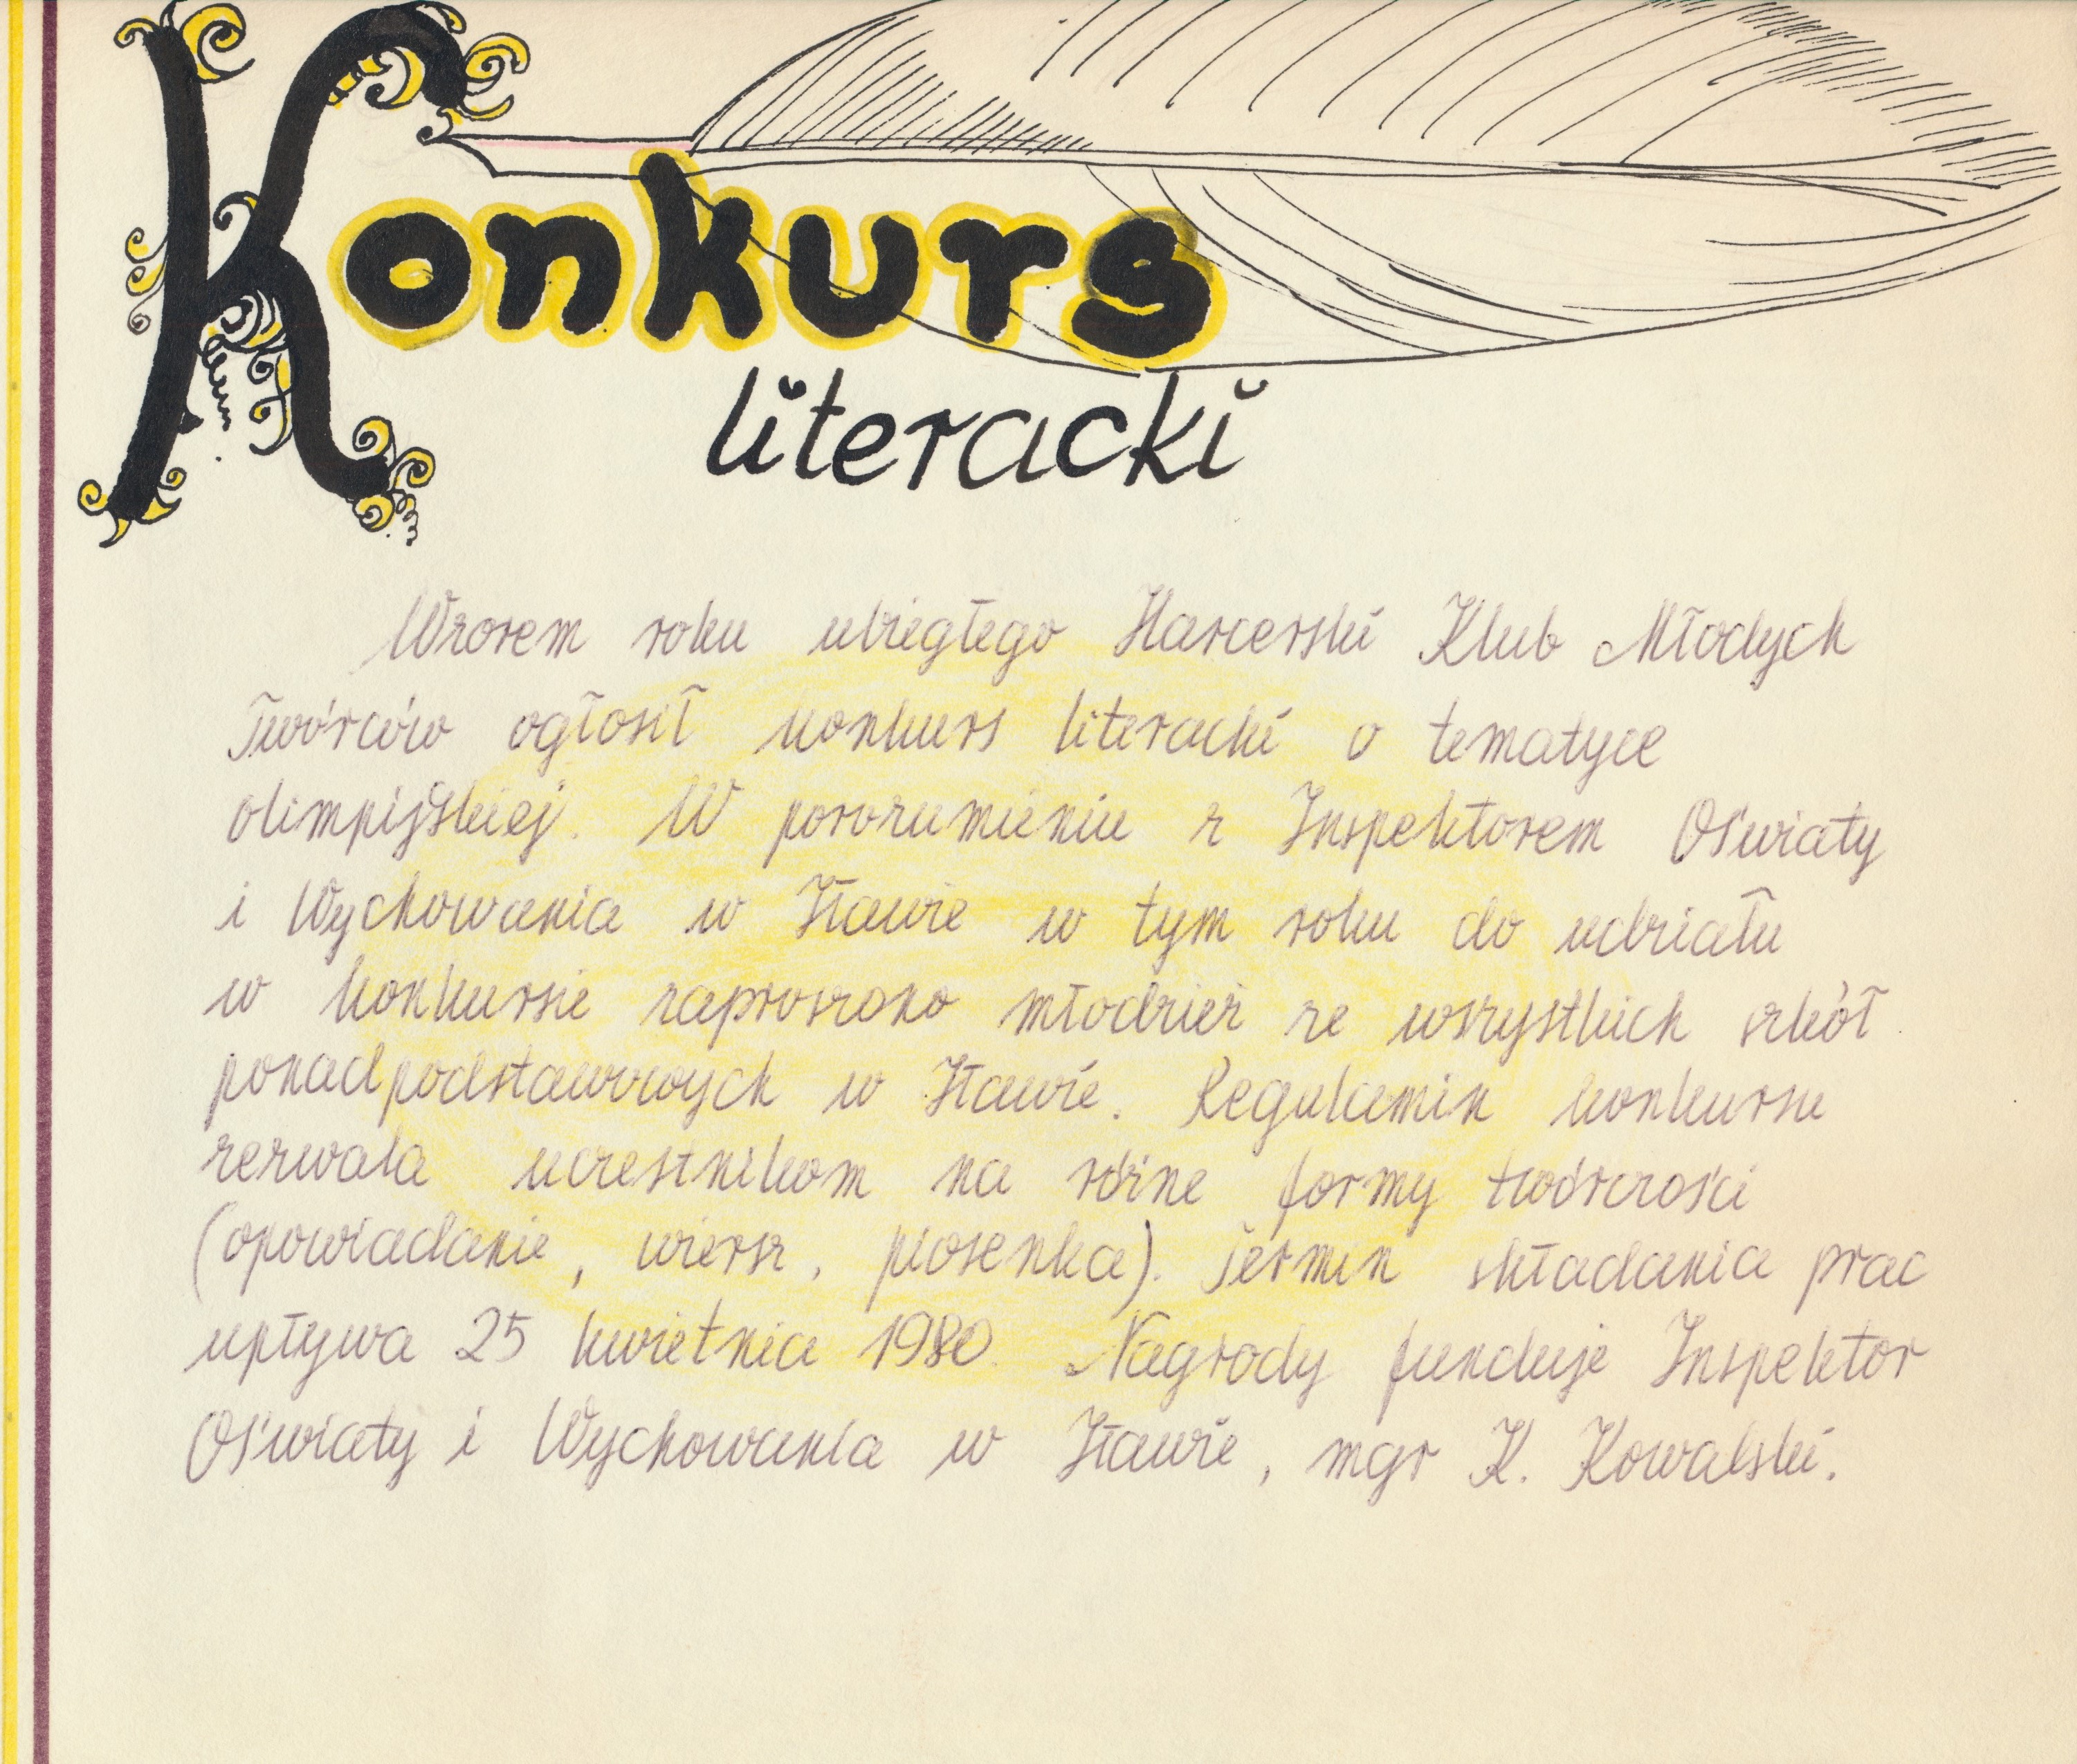 Konkurs
literacki
Wzorem roku ubiegłego Harcerski Klub Młodych
Twórców ogłosił konkurs literacki o tematyce
olimpijskiej. W porozumieniu z Inspektorem Oświaty
i Wychowania w Iławie w tym roku do udziału
w konkursie zaproszono młodzież ze wszystkich szkół
ponadpodstawowych w Iławie. Regulamin konkursu
zezwala uczestnikom na różne formy twórczości
(opowiadanie, wiersz, piosenka). Termin składania prac
upływa 25 kwietnia 1980. Nagrody funduje Inspektor
Oświaty i Wychowania w Iławie, mgr K. Kowalski.